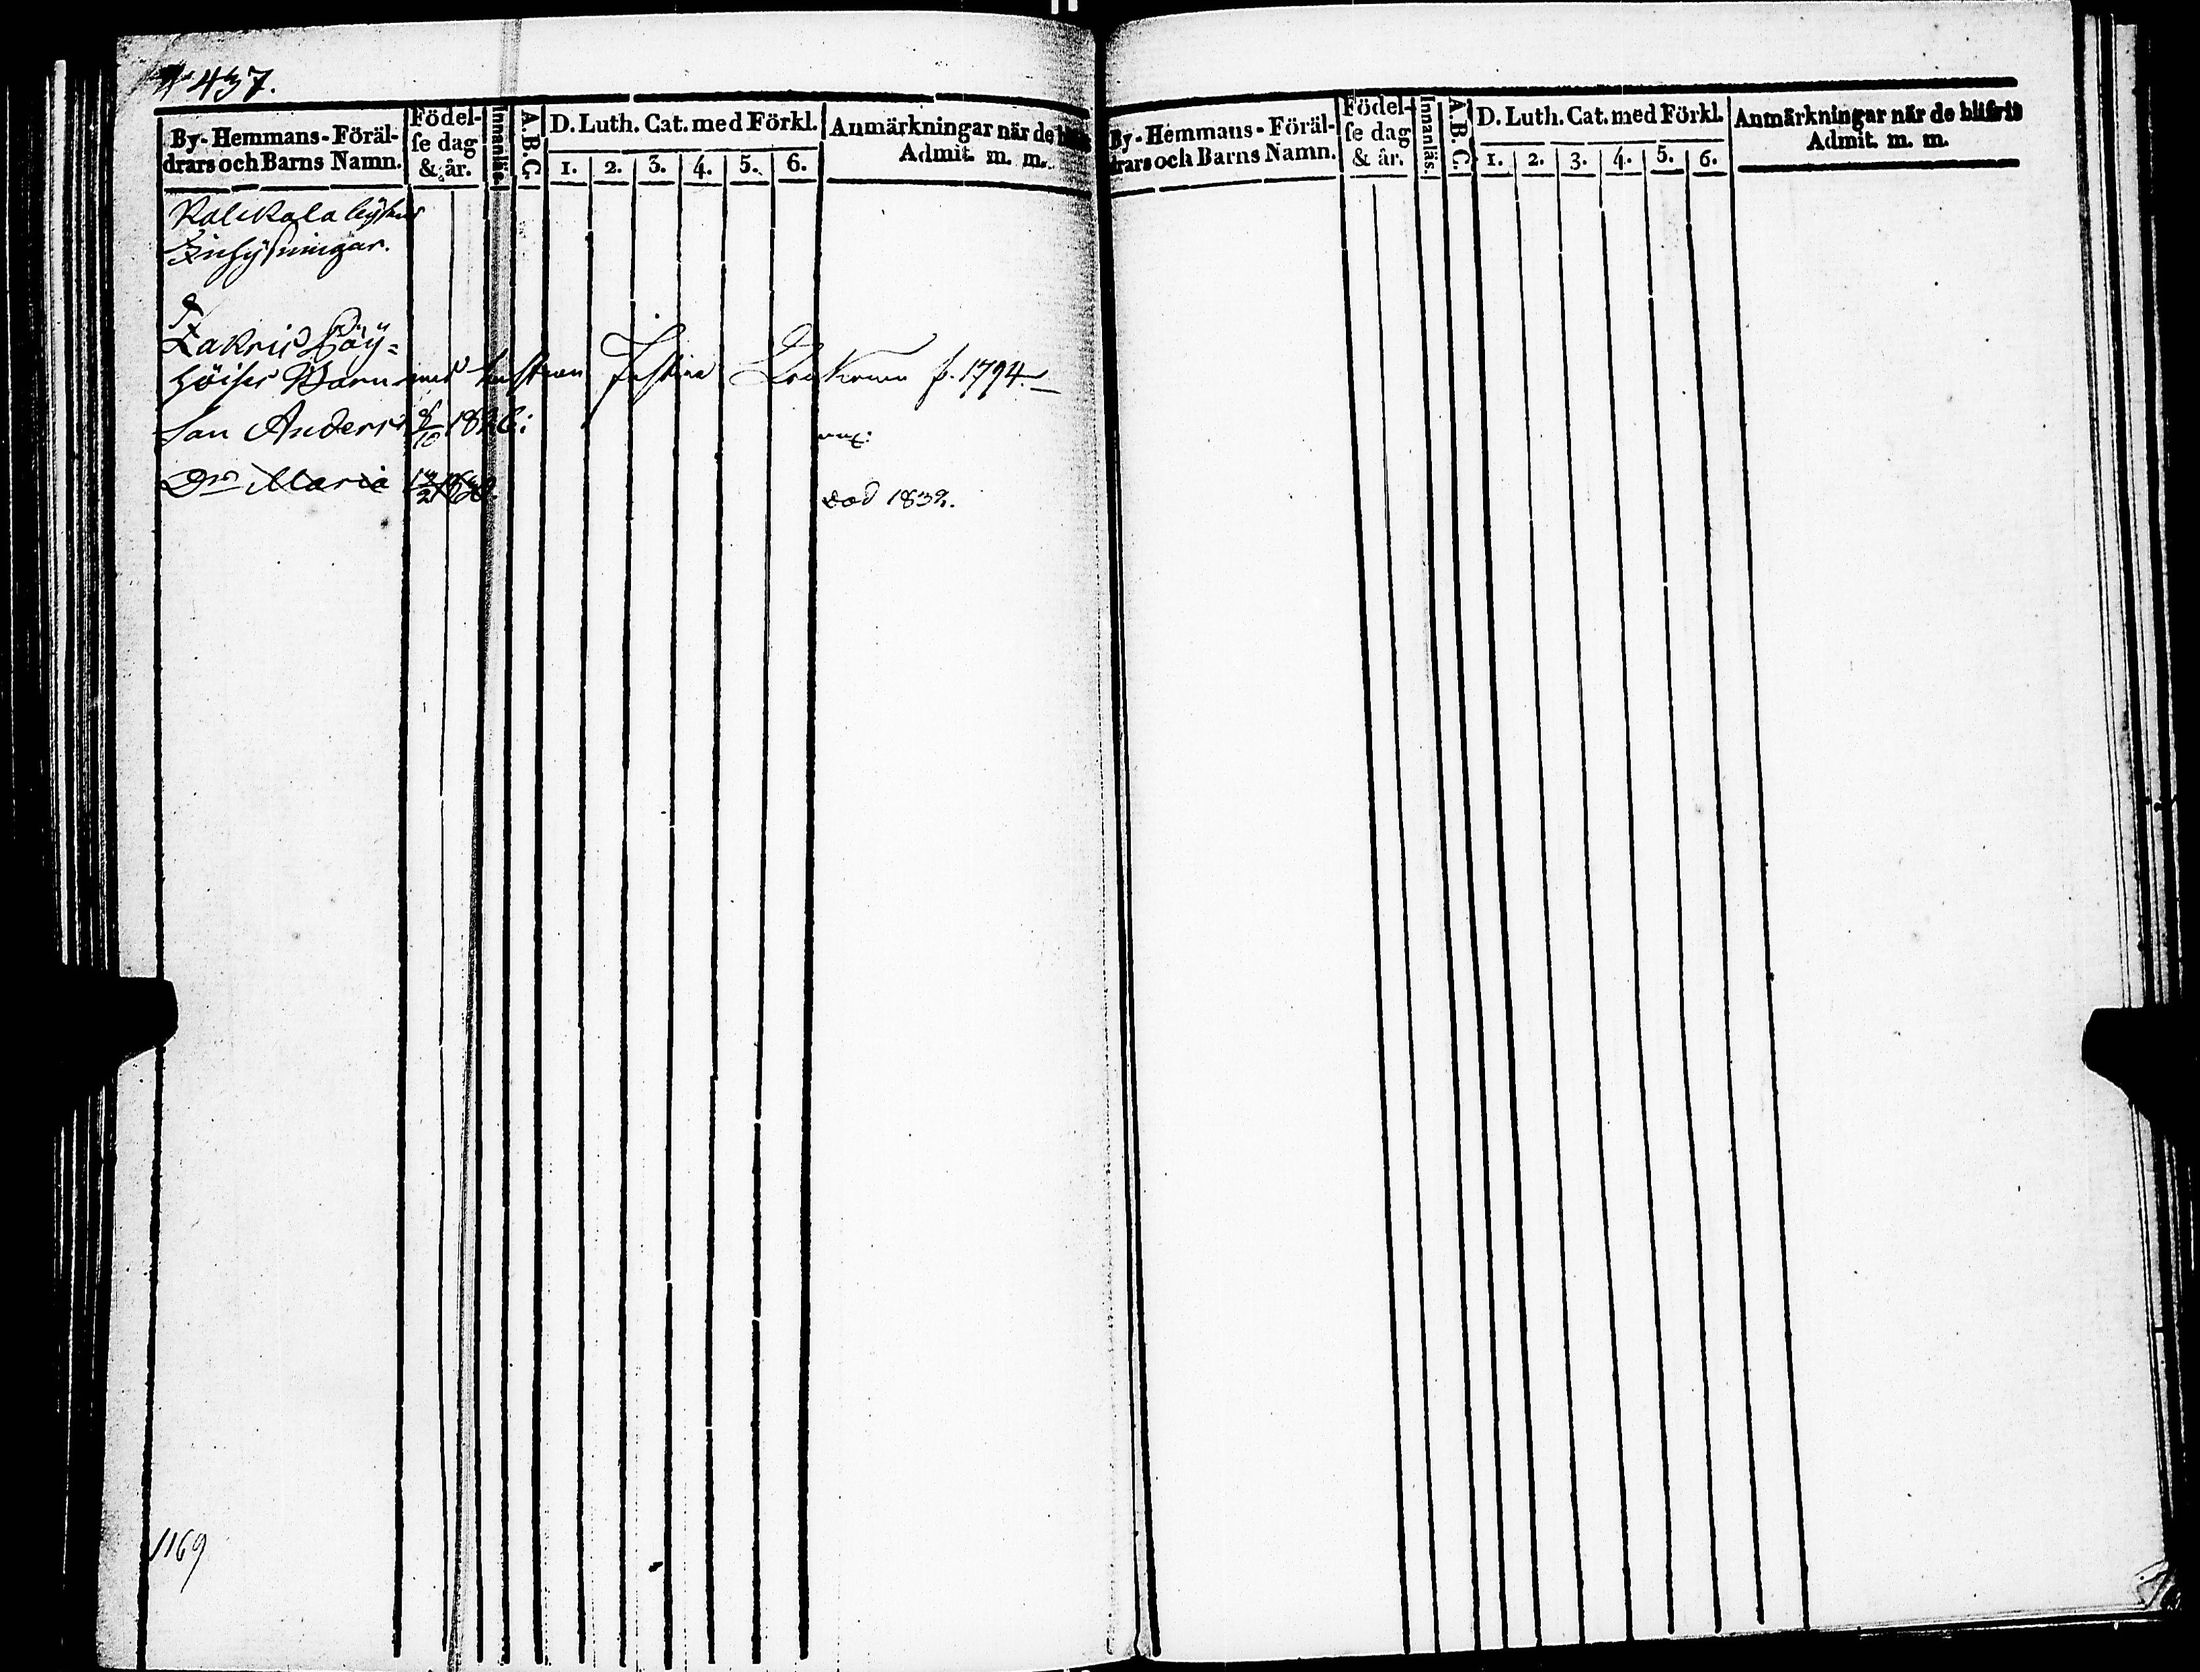 437.
By-Hemmans-Föräl-
drars och Barns Namn.
Födel-
se dag
& år.
Innanläs.
A.B.C.
D. Luth. Cat. med Förkl.
1. 2. 3. 4. 5. 6.
Anmärkningar när de
Admit. m. m.
Inhysningar.
Zakris
Barn med hustrun Justina f. 1794.
Son Anders
Dr Maria
död 1832.
1169
By-Hemmans-Föräl-
drars och Barns Namn.
Födel-
se dag
& år.
Innanläs.
A.B.C.
D. Luth. Cat. med Förkl.
1. 2. 3. 4. 5. 6.
Anmärkningar när de blifvit
Admit. m. m.